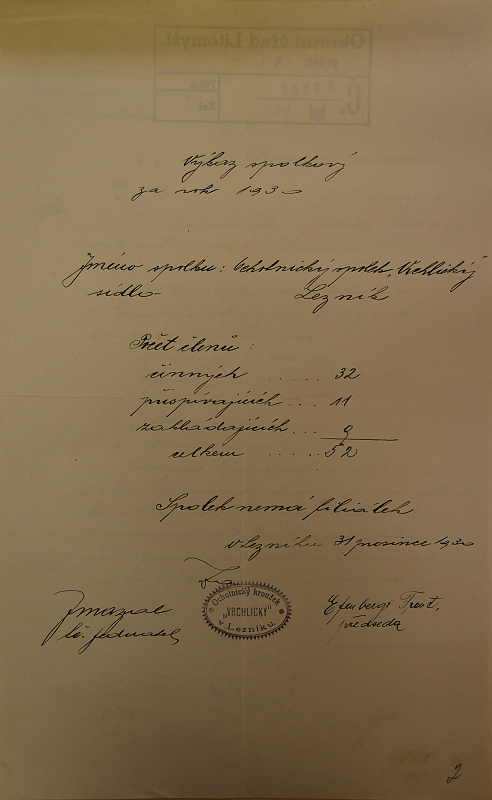 Výkaz spolkový
za rok 1930
Jméno spolku: Ochotnický spolek „Vrchlický"
sídlo Lezník
Počet členů:
činných ..... 32
přispívajících ... 11
zakládajících ... 9
celkem ..... 52
Spolek nemá filiálek
v Lezníku 31 prosince 1930
Ochotnický kroužek
„VRCHLICKÝ"
v Lezníku.
t. č. jednatel
předseda
2